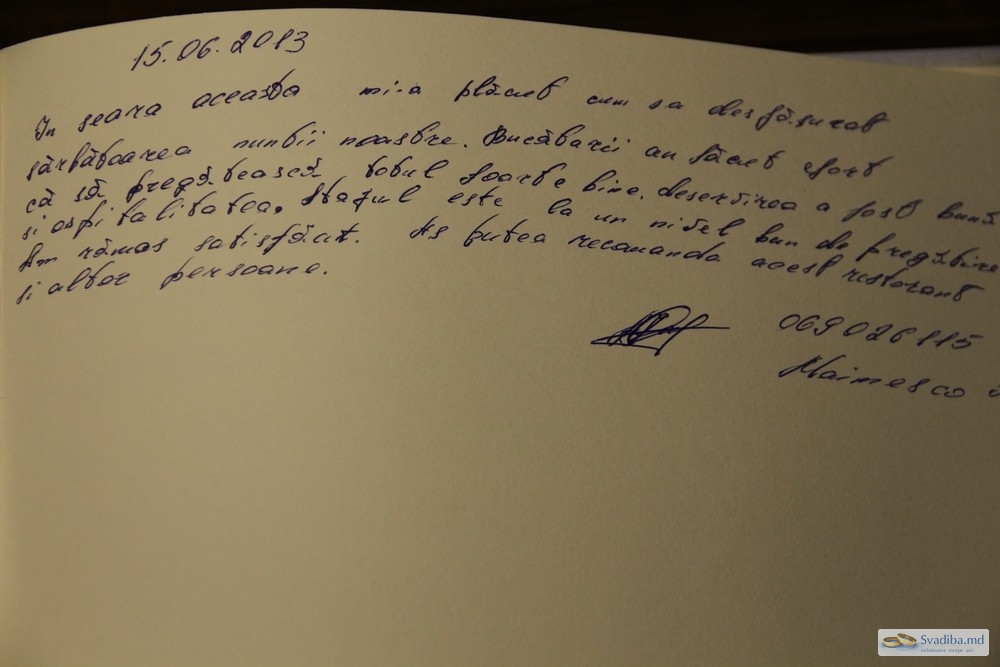 15.06.2013
In seara aceasta mi-a plăcut cum s-a desfășurat
sărbătoarea nunții noastre. Bucătarii au făcut efort
că să pregătească totul foarte bine. deservirea a fost bună
și ospitalitatea. Statul este la un nivel bun de pregătire
Am rămas satisfăcut. As putea recomanda acest restorant
și altor persoane.
069026115
Maimesco
Svadiba.md